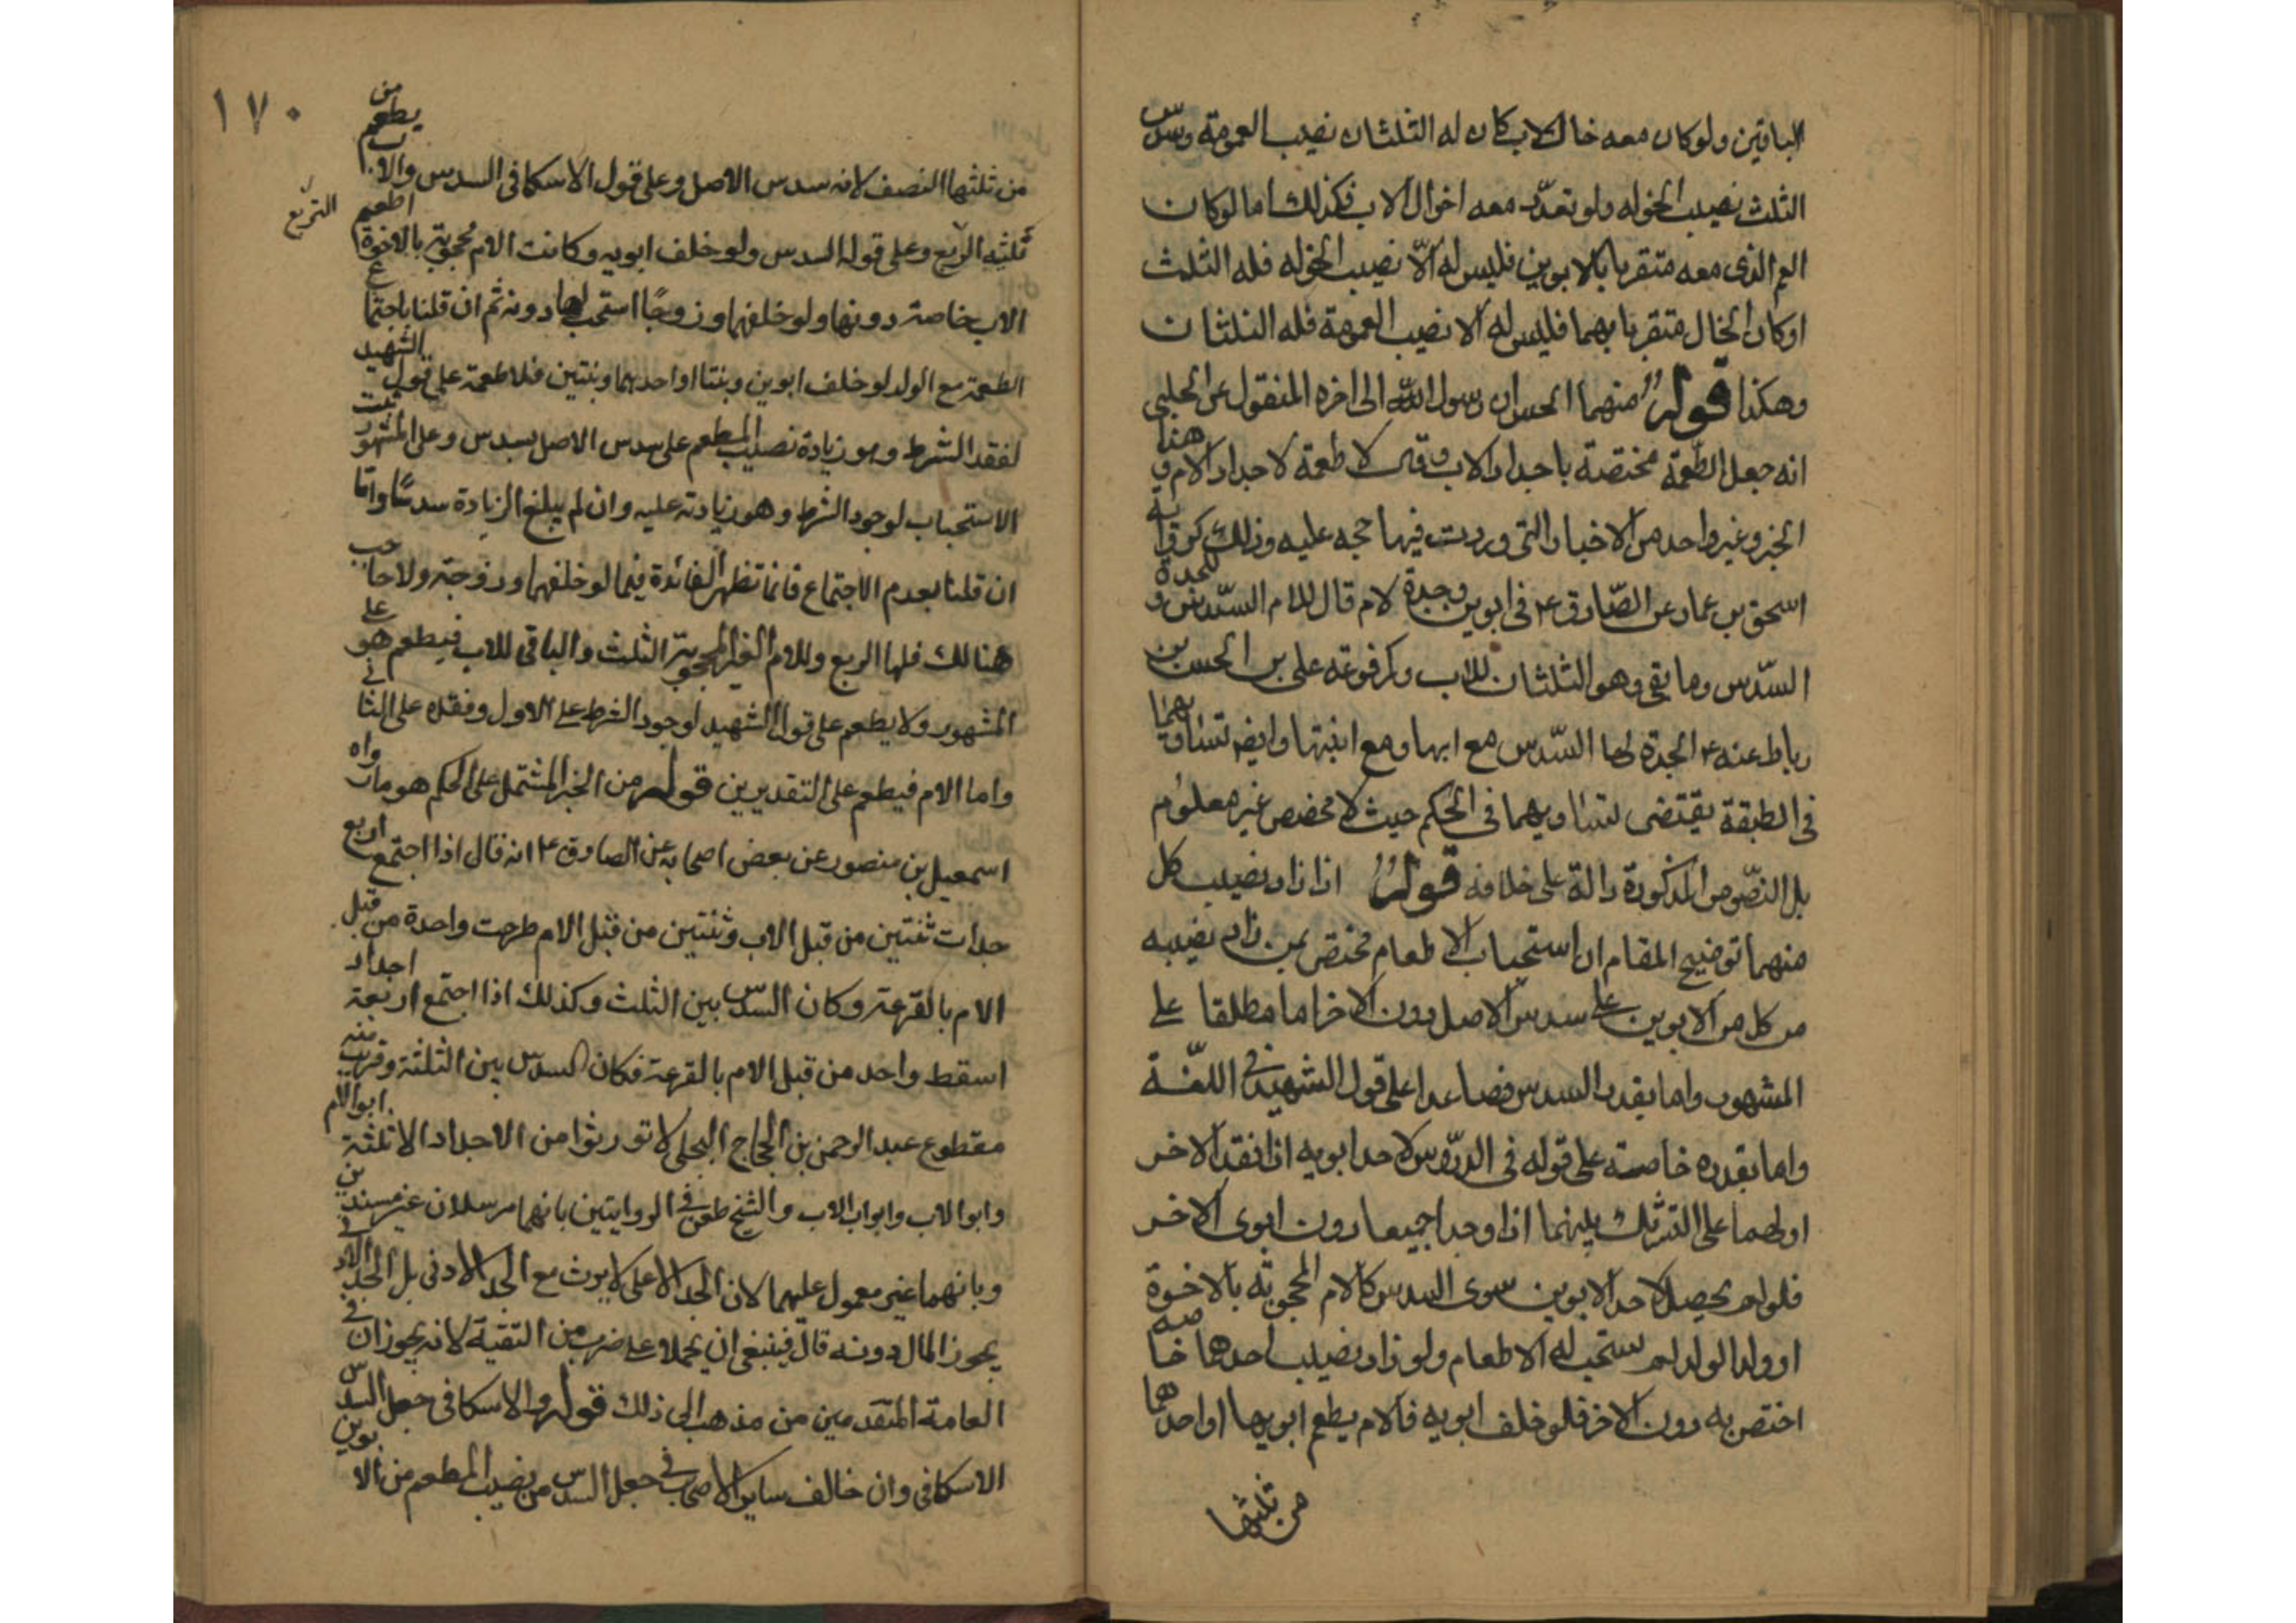 الباقين ولو كان معه خال الاب كان له الثلثان نصيب العمومة وسدس
الثلث نصيب الخوله ولو تعدد معه اخوال الاب فكذلك اما لو كان
العم الذى معه متقربا بالابوين فليس له الا نصيب الخوله فله الثلث
او كان الخال متقربا بهما فليس له الا نصيب العمومة فله الثلثان
وهكذا قوله منهما الحسن ان رسول الله الى اخره المنقول عن الحلبى
انه جعل الطعمة مختصة باجداد الاب وقال لا طعمة لاجداد الام وهذا
الخبر وغير واحد من الاخبار التى وردت فيها حجه عليه وذلك كرواية
اسحق بن عمار عن الصادق ع فى ابوين وجدة لام قال للام السدس وللجدة
السدس وما بقى وهو الثلثان للاب وكمرفوعة على بن الحسن بن
رباط عنه ع الجدة لها السدس مع ابنها ومع ابنتها وايض تساويهما
فى الطبقة يقتضى تساويهما فى الحكم حيث لا مخصص غير معلوم
بل النصوص المذكورة دالة على خلافه قوله اذا زاد نصيب كل
منهما توضيح المقام ان استحباب الاطعام مختص بمن زاد نصيبه
من كل من الابوين على سدس الاصل دون الاخر اما مطلقا على
المشهور واما بقدر السدس فصاعدا على قول الشهيد فى اللمعة
واما بقدره خاصة على قوله فى الدروس لاحد ابويه اذا فقد الاخر
اولهما على التشريك بينهما اذا وجدا جميعا دون ابوى الاخر
فلو لم يحصل لاحد الابوين سوى السدس كالام المحجوبة بالاخوة
او ولد الولد لم يستحب له الاطعام ولو زاد نصيب احدهما خاصة
اختص به دون الاخر فلو خلف ابويه فالام يطعم ابويها او احدهما
من ثلثها
١٧٠
من ثلثها النصف لانه سدس الاصل وعلى قول الاسكافى السدس والاب يطعم من
ثلثيه الربع وعلى قوله السدس ولو خلف ابويه وكانت الام محجوبة بالاخوة اطعم
التربع
الاب خاصة دونها ولو خلفهما وزوجا استحب لها دونه ثم ان قلنا باجتماع
الطعمة مع الولد لو خلف ابوين وبنتا او احدهما وبنتين فلا طعمة على قول الشهيد
لفقد الشرط وهو زيادة نصيب المطعم على سدس الاصل بسدس وعلى المشهور يثبت
الاستحباب لوجود الشرط وهو زيادته عليه وان لم يبلغ الزيادة سدسا واما
ان قلنا بعدم الاجتماع فانما تظهر الفائدة فيما لو خلفهما وزوجة ولا حاجب
هنالك فلها الربع وللام الغير المحجوبة الثلث والباقى للاب فيطعم هو على
المشهور ولا يطعم على قول الشهيد لوجود الشرط على الاول وفقده على الثانى
واما الام فيطعم على التقديرين قوله من الخبر المشتمل على الحكم هو ما رواه
اسمعيل بن منصور عن بعض اصحابه عن الصادق ع انه قال اذا اجتمع اربع
جدات ثنتين من قبل الاب وثنتين من قبل الام طرحت واحدة من قبل
الام بالقرعة وكان السدس بين الثلث وكذلك اذا اجتمع اربعة اجداد
اسقط واحد من قبل الام بالقرعة فكان السدس بين الثلثة وقريب منه
مقطوع عبد الرحمن بن الحجاج البجلى لا تورثوا من الاجداد الا ثلثة ابو الام
وابو الاب وابو اب الاب والشيخ طعن فى الروايتين بانهما مرسلان غير مسندين
وبانهما غير معمول عليهما لان الجد الاعلى لا يرث مع الجد الادنى بل الجد الادنى
يحوز المال دونه قال فينبغى ان يحملا على ضرب من التقية لانه يجوز ان فى
العامة المتقدمين من مذهب الى ذلك قوله والاسكافى جعل السدس
الاسكافى وان خالف ساير الاصحاب فى جعل السدس من نصيب المطعم من الابوين